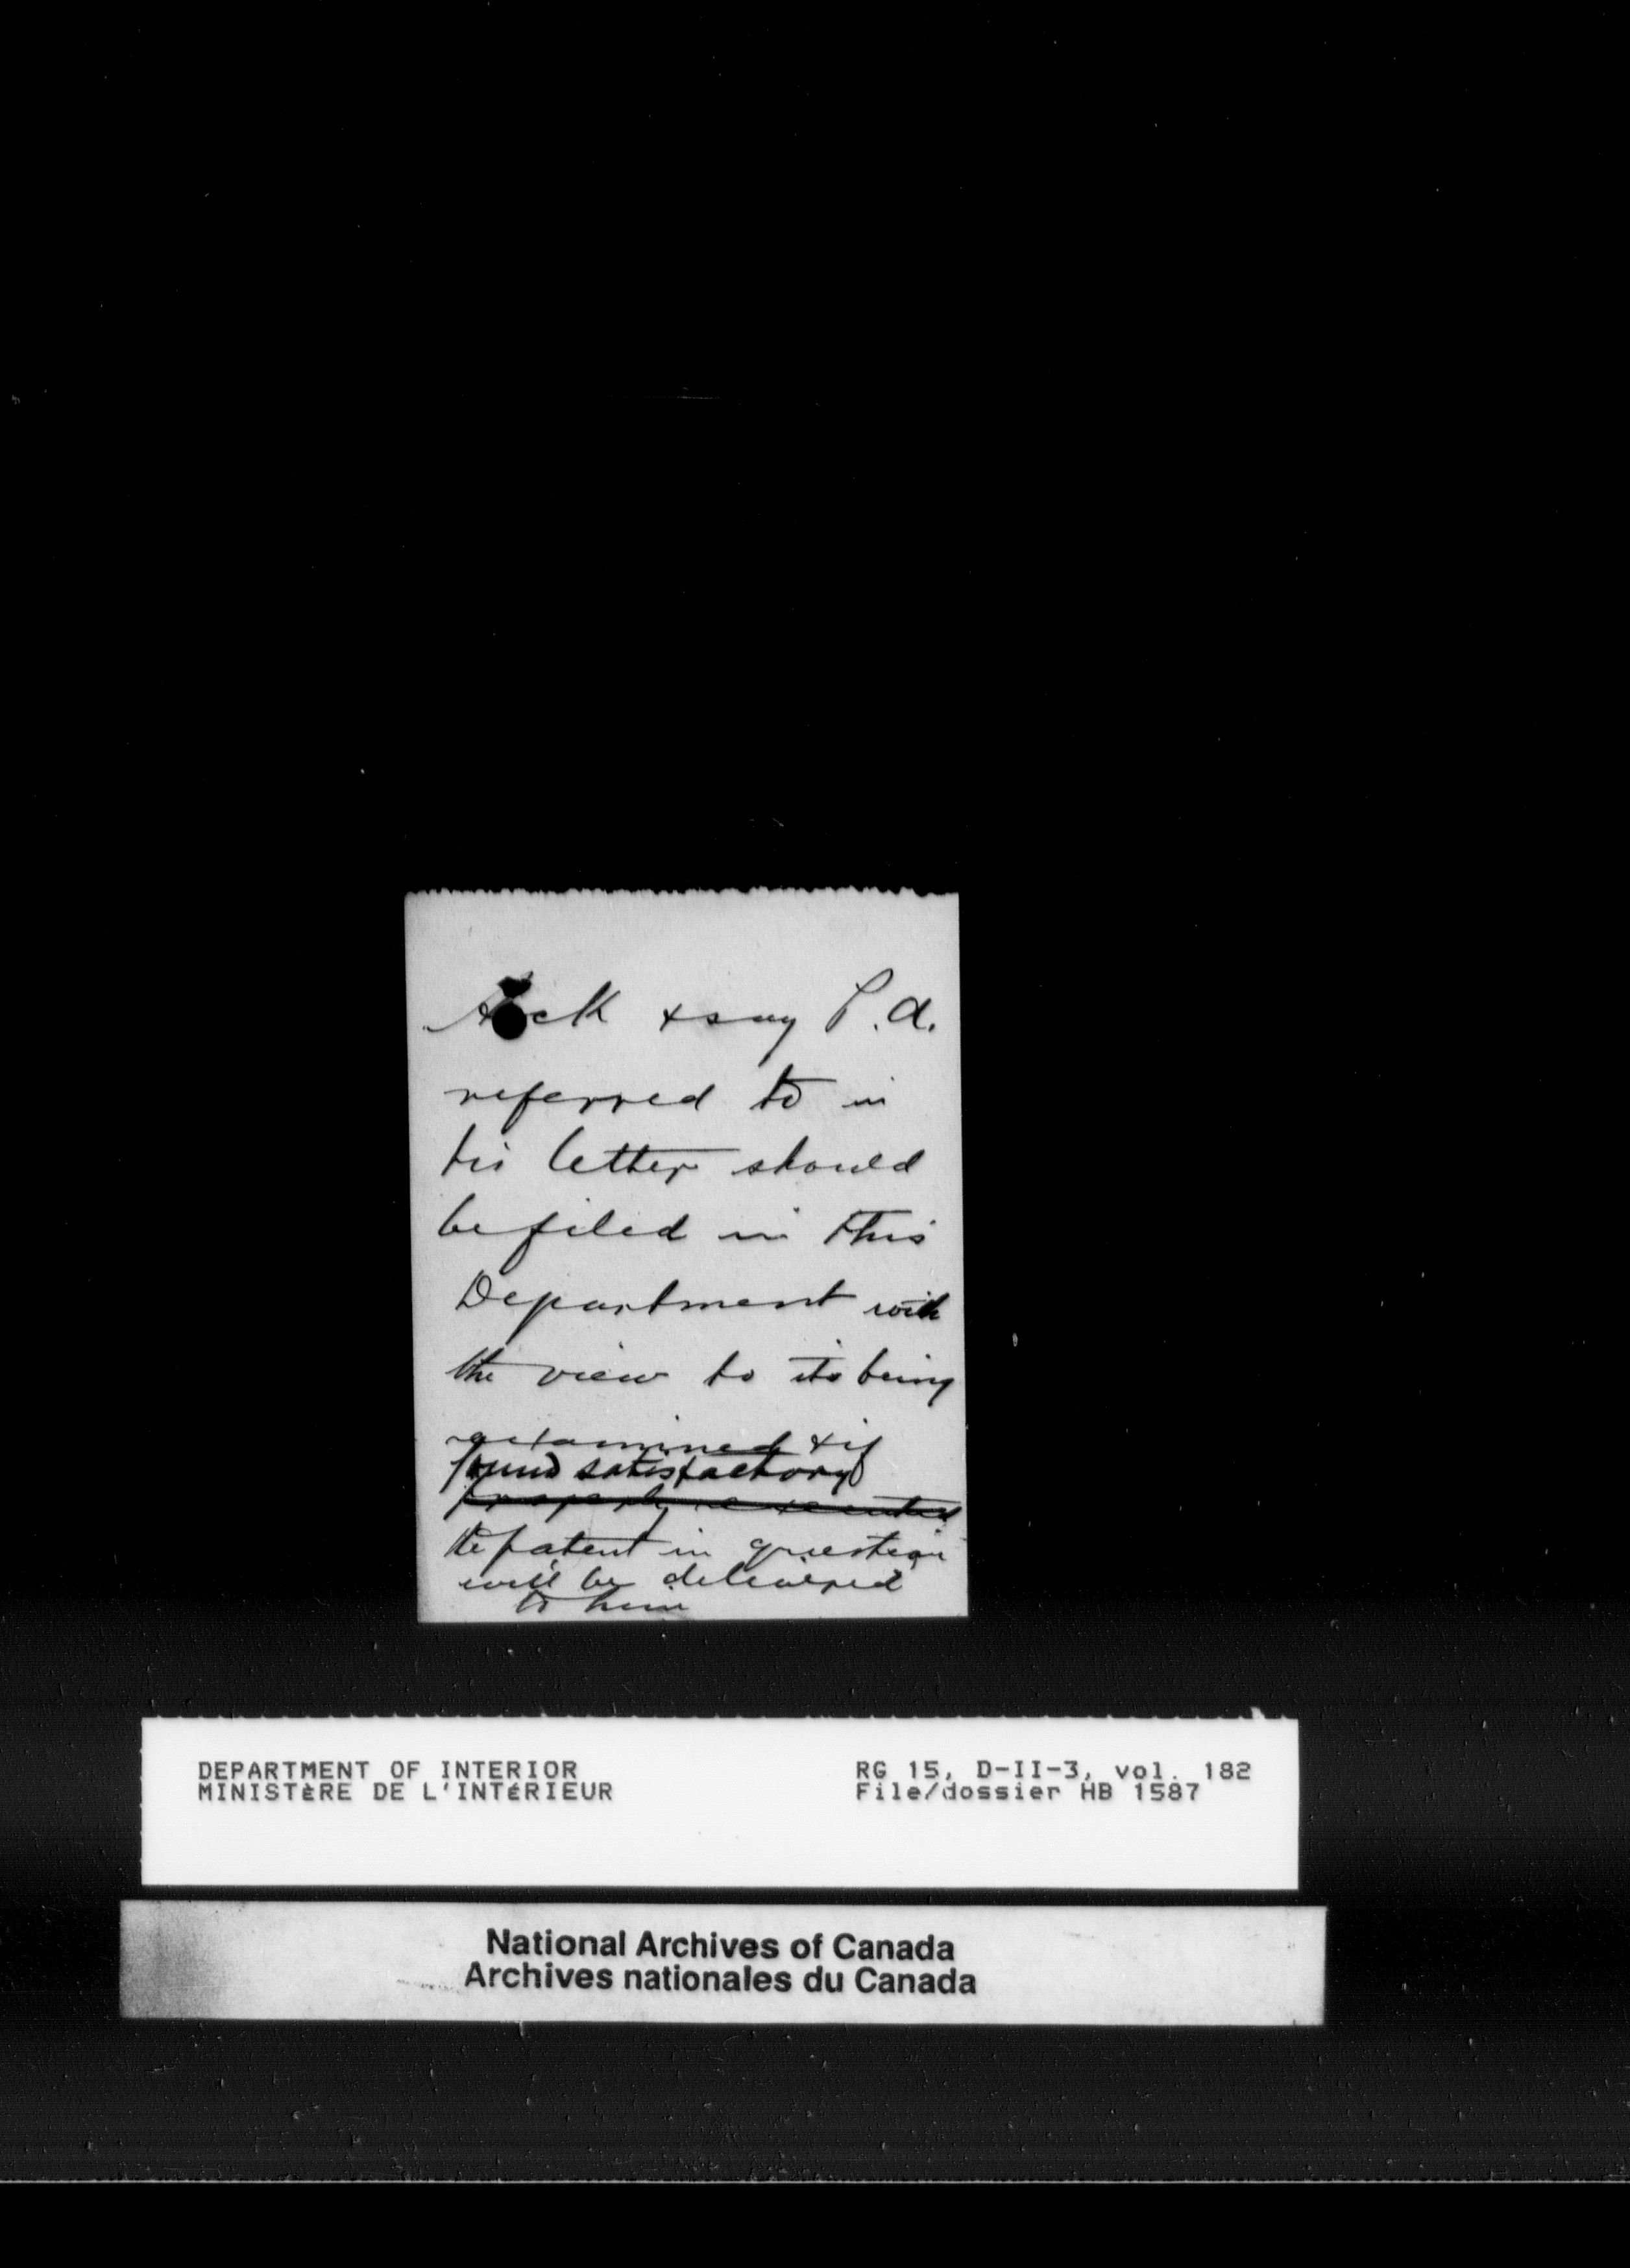 Ack & say P.A.
referred to in
his letter should
be filed in this
Department with
the view to its being
examined & if
found satisfactory
properly executed
the patent in question
will be delivered
to him
DEPARTMENT OF INTERIOR
MINISTÈRE DE L'INTÉRIEUR
RG 15, D-II-3, vol. 182
File/dossier HB 1587
National Archives of Canada
Archives nationales du Canada